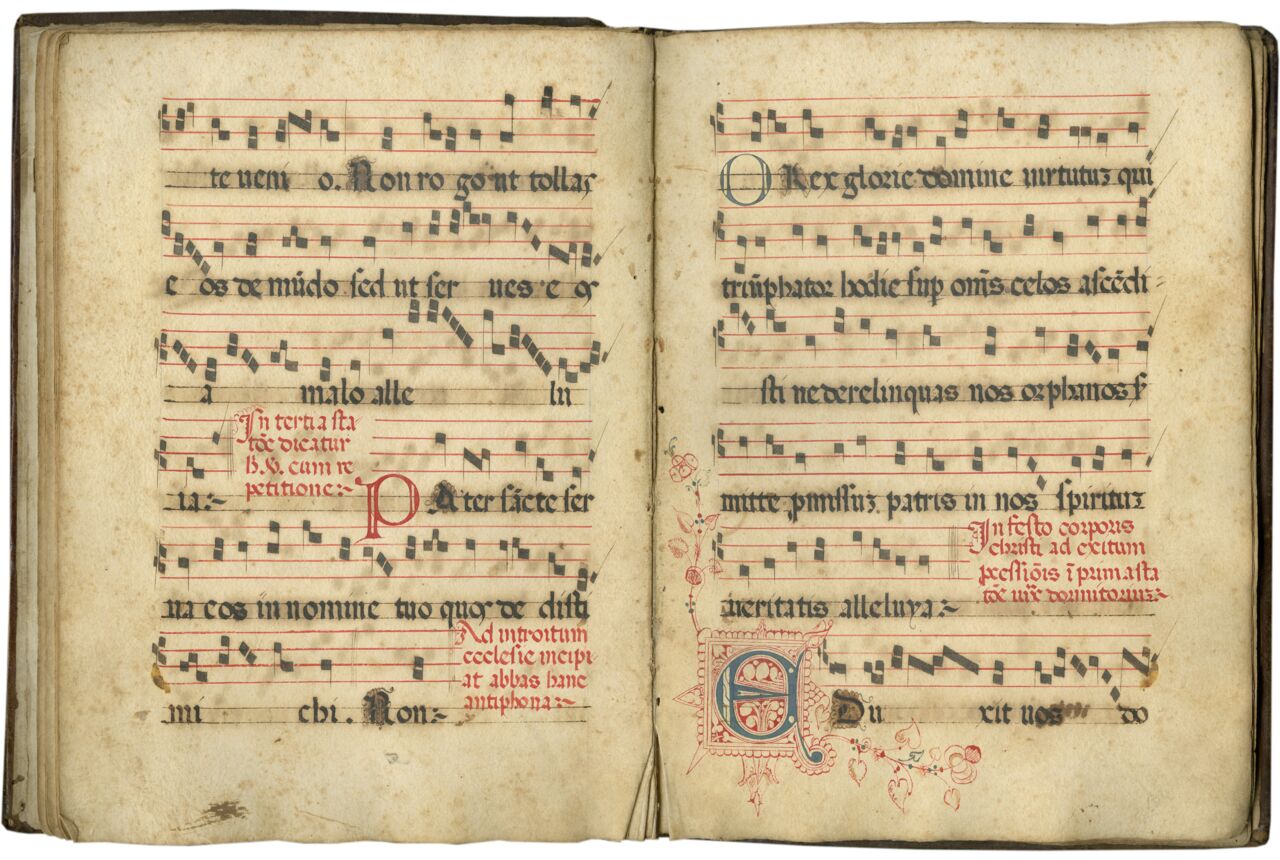 te veni o. Non ro go ut tollas
e os de mūdo sed ut ser ves e os
a malo alle lu
In tertia sta
tōe dicatur
cum re
petitione
ia.
PAter sācte ser
va eos in nomine tuo quos de disti
Ad introitum
ecclesie incipi
at abbas hanc
antiphona
mi chi. Non
O Rex glorie domine virtutuz qui
triūphator hodie sup omīs celos ascēdi
sti ne derelinquas nos orphanos s
mitte pmissuz patris in nos spirituz
In festo corporis
christi ad exitum
pcessiōis ī prima sta
tōe
veritatis alleluya
EDu xit vos do